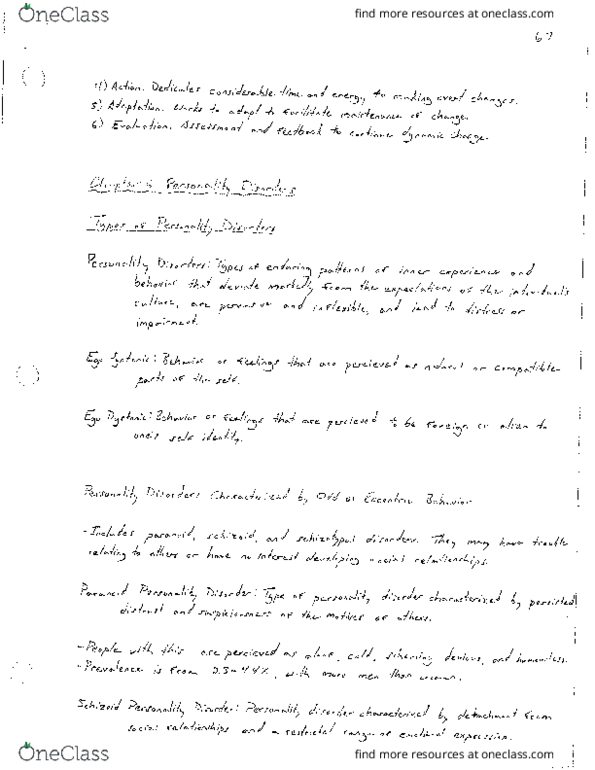 OneClass
find more resources at oneclass.com
67
4) Action. Dedicates considerable time and energy to making event changes.
5) Adaptation. Works to adapt to facilitate maintenance of change.
6) Evaluation. Assessment and feedback to continue dynamic change.
Chapter 6: Personality Disorders
Types of Personality Disorders
Personality Disorders: Types of enduring patterns of inner experience and
behavior that deviate markedly from the expectations of the individual's
culture, are pervasive and inflexible, and lead to distress or
impairment.
Ego Syntonic: Behavior or feelings that are percieved as natural or compatible
parts of the self.
Ego Dystonic: Behavior or feelings that are percieved to be foreign or alien to
one's self identity.
Personality Disorders Characterized by Odd or Eccentric Behavior
-Includes paranoid, schizoid, and schizotypal disorders. They may have trouble
relating to others or have no interest developing social relationships.
Paranoid Personality Disorder: Type of personality disorder characterized by persisted
distrust and suspiciousness of the motives of others.
-People with this are percieved as alone, cold, scheming devious, and humorless.
-Prevalence is from 2.3-4.4%, with more men than women.
Schizoid Personality Disorder: Personality disorder characterized by detachment from
social relationships and a restricted range of emotional expression.
OneClass
find more resources at oneclass.com